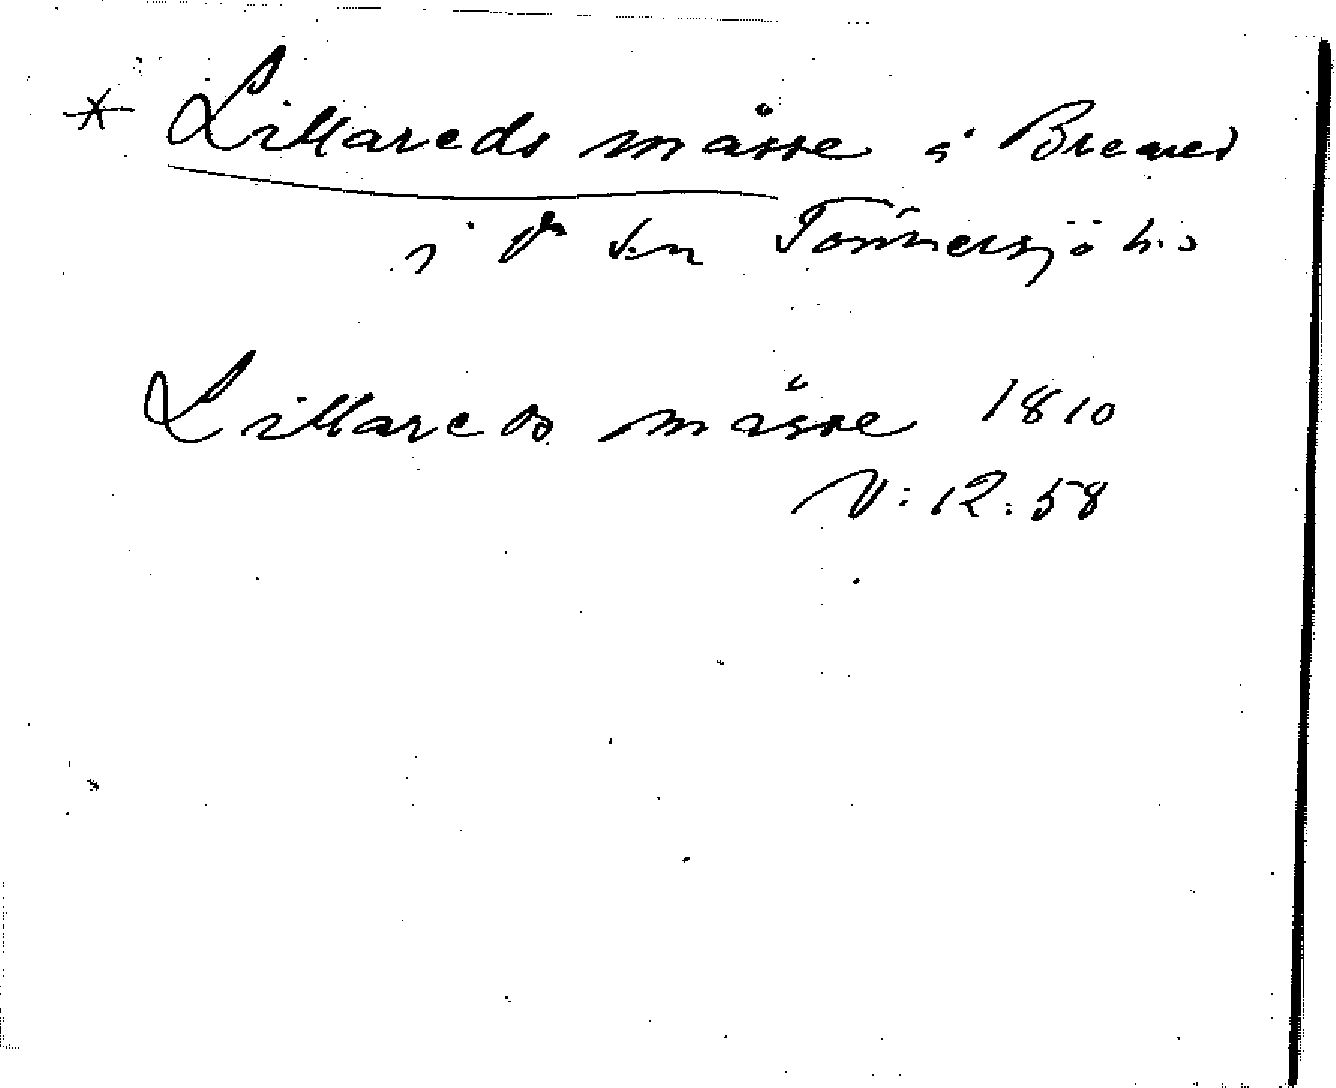 * Lillareds måsse i Breared
i d:o sn Tönnersjö h:d
Lillareds måsse 1810
V: 12: 58